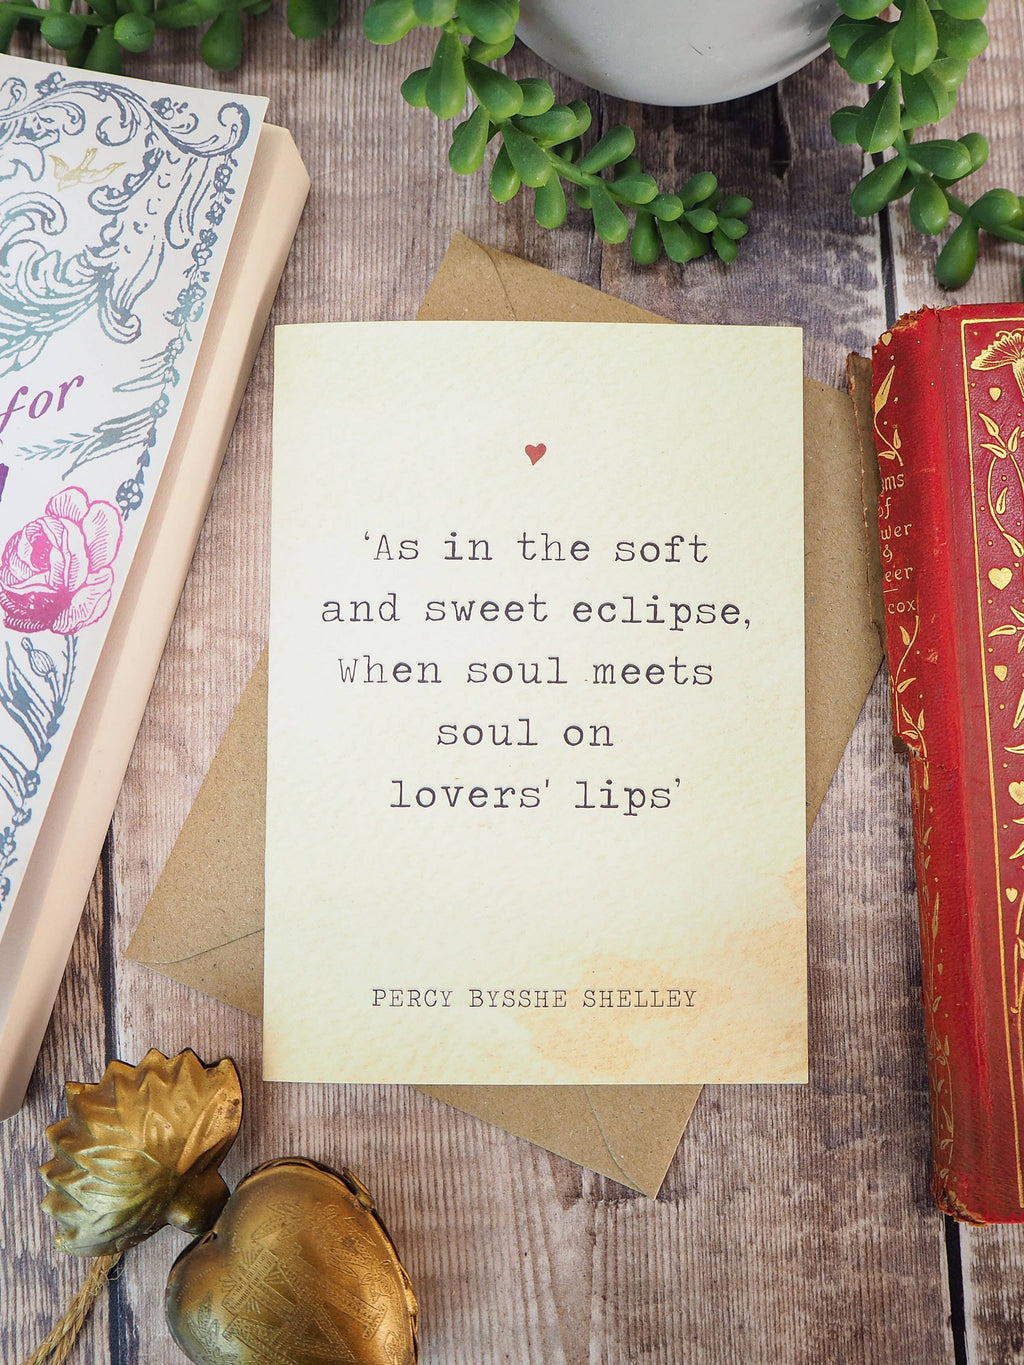 for
‘As in the soft
and sweet eclipse,
When soul meets
soul on
lovers' lips’
PERCY BYSSHE SHELLEY
of
&